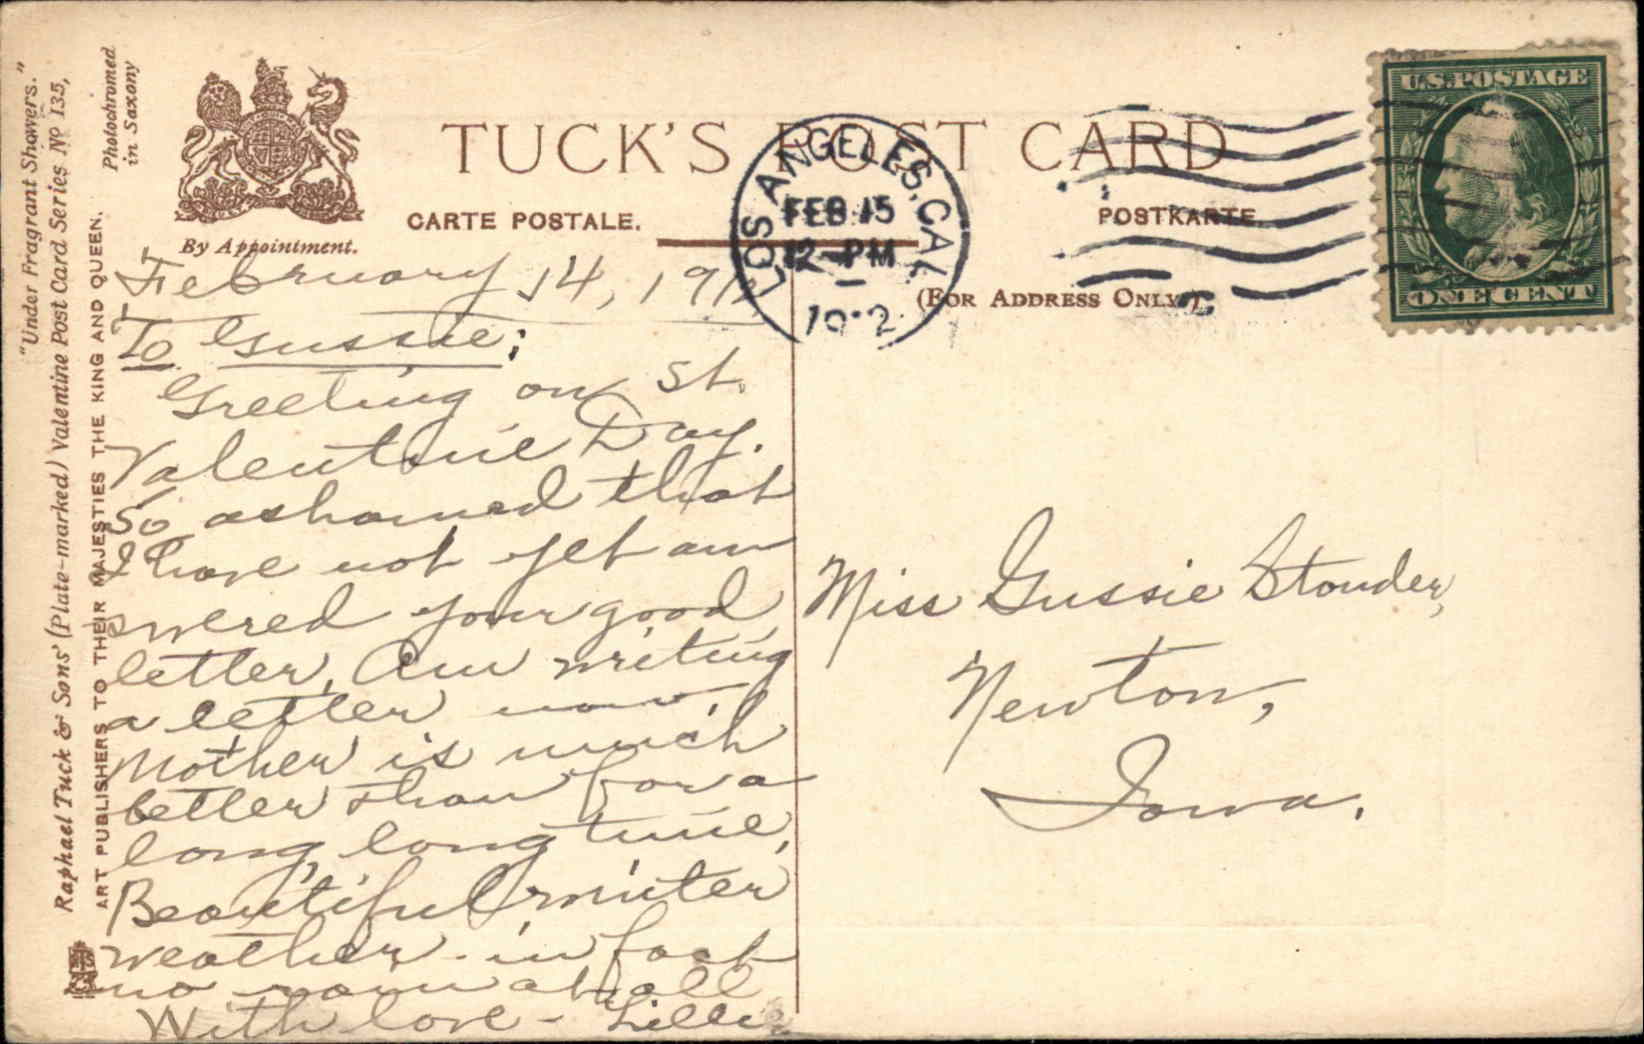 "Under Fragrant Showers."
Raphael Tuck & Sons' (Plate-marked) Valentine Post Card Series No 135,
ART PUBLISHERS TO THEIR MAJESTIES THE KING AND QUEEN.
Photochromed
in Saxony
By Appointment.
TUCK'S POST CARD
CARTE POSTALE.
POSTKARTE
(FOR ADDRESS ONLY.)
LOS ANGELES, CAL.
FEB 15
12-PM
1912
U.S. POSTAGE
ONE CENT
February 14, 1912
To Gussie;
Greeting on St.
Valentine Day.
So ashamed that
I have not yet an
swered your good
letter. Am writing
a letter now.
Mother is much
better than for a
long, long time.
Beautiful winter
weather - in fact
no rain at all
With love - Lillie
Miss Gussie Stouder,
Newton,
Iowa.